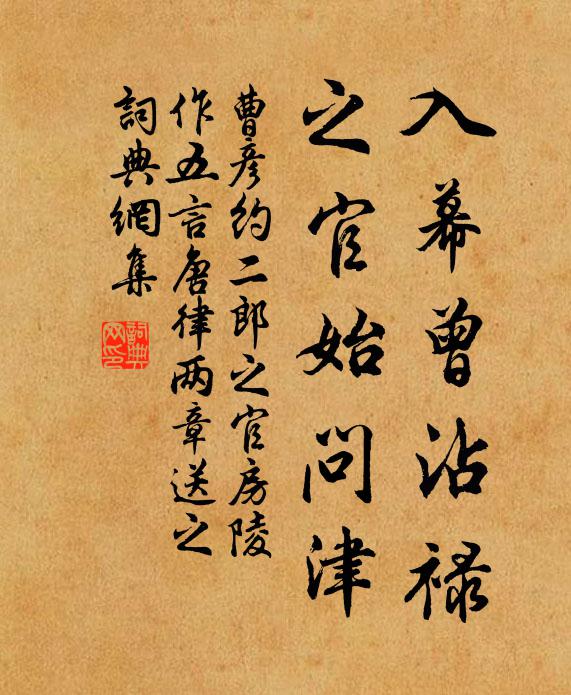 入幕曾沾禄
之官始问津
曹彦约二郎之官房陵
作五言唐律两章送之
詞典網集
詞典网印